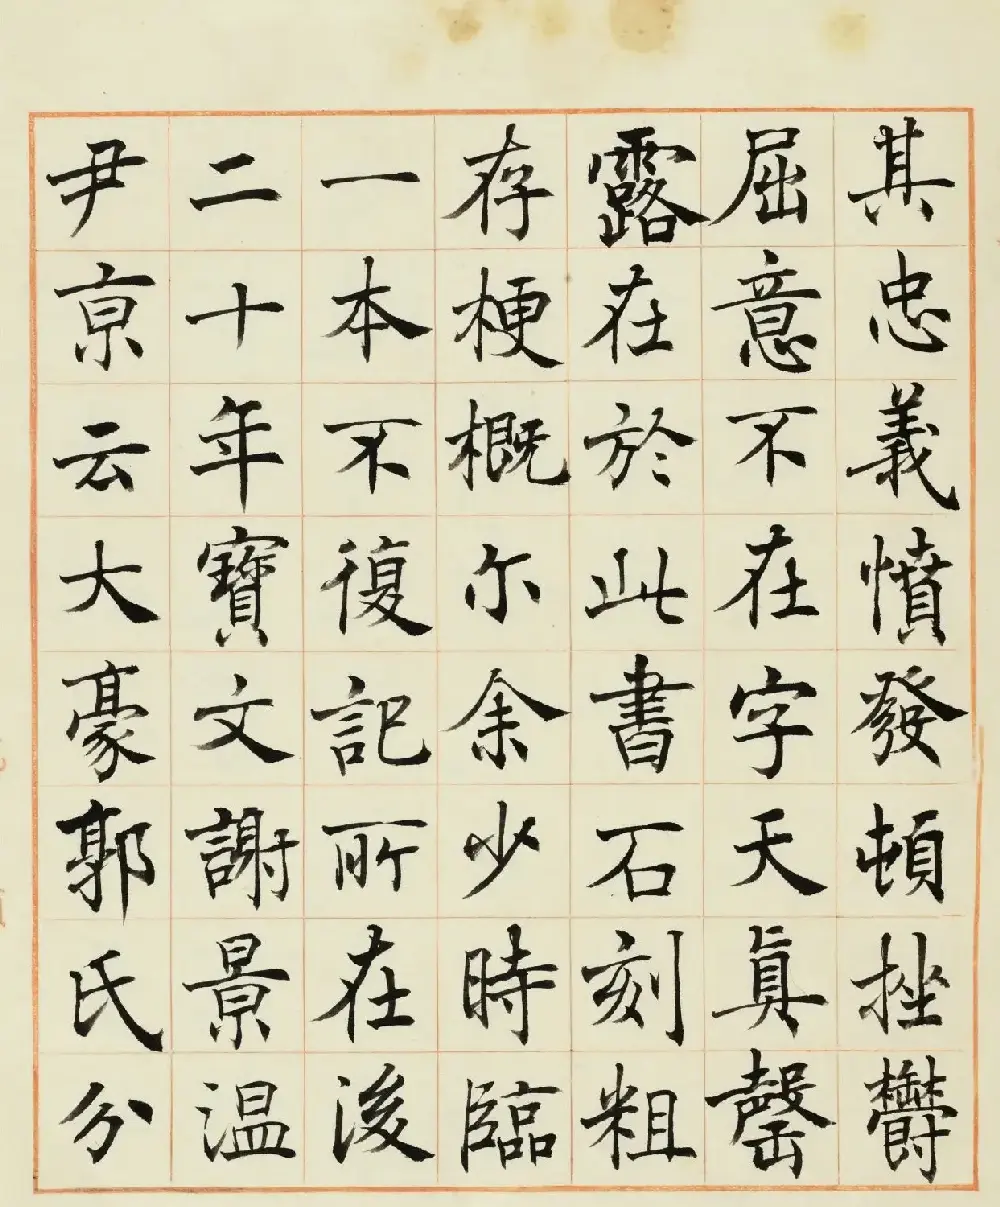 其忠義憤發頓挫欝
屈意不在字天真罄
露在於此書石刻粗
存梗概尔余少時臨
一本不復記所在後
二十年寶文謝景温
尹亰云大豪郭氏分